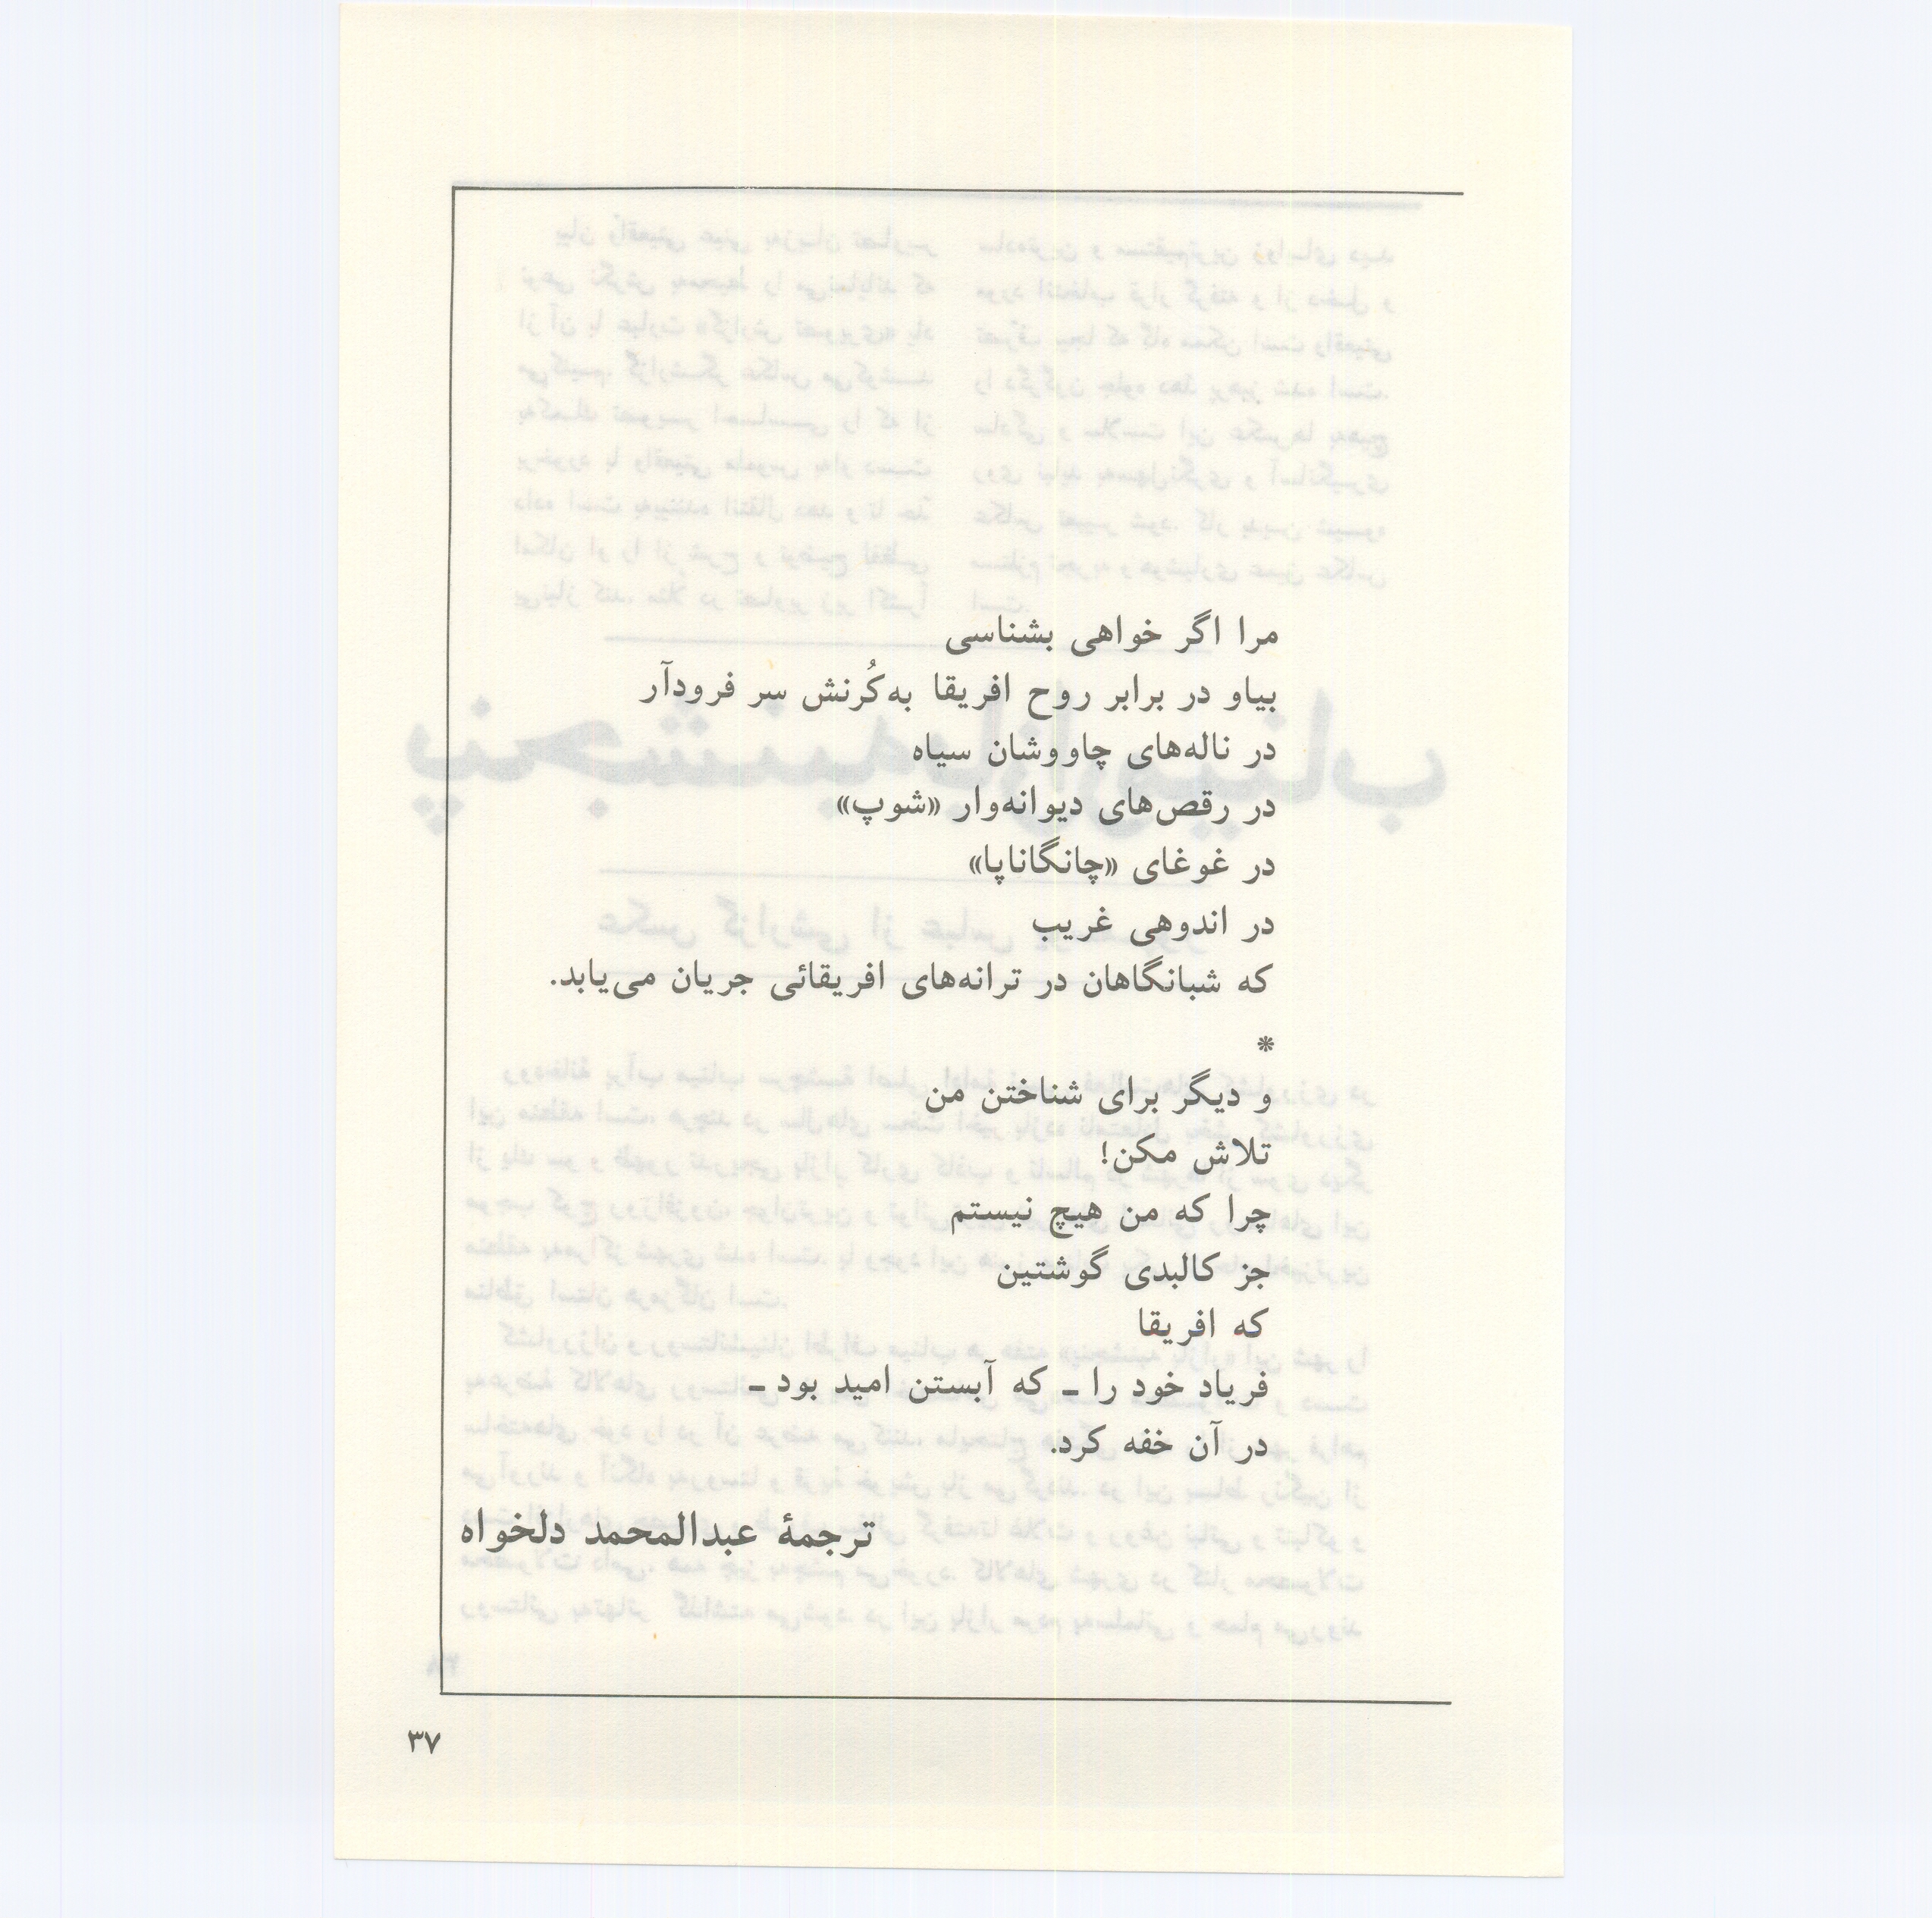 مرا اگر خواهی بشناسی
بیاو در برابر روح افریقا به‌کُرنش سر فرودآر
در ناله‌های چاووشان سیاه
در رقص‌های دیوانه‌وار «شوپ»
در غوغای «چانگاناپا»
در اندوهی غریب
که شبانگاهان در ترانه‌های افریقائی جریان می‌یابد.
*
و دیگر برای شناختن من
تلاش مکن!
چرا که من هیچ نیستم
جز کالبدی گوشتین
که افریقا
فریاد خود را ـ که آبستن امید بود ـ
در آن خفه کرد.
ترجمهٔ عبدالمحمد دلخواه
۳۷